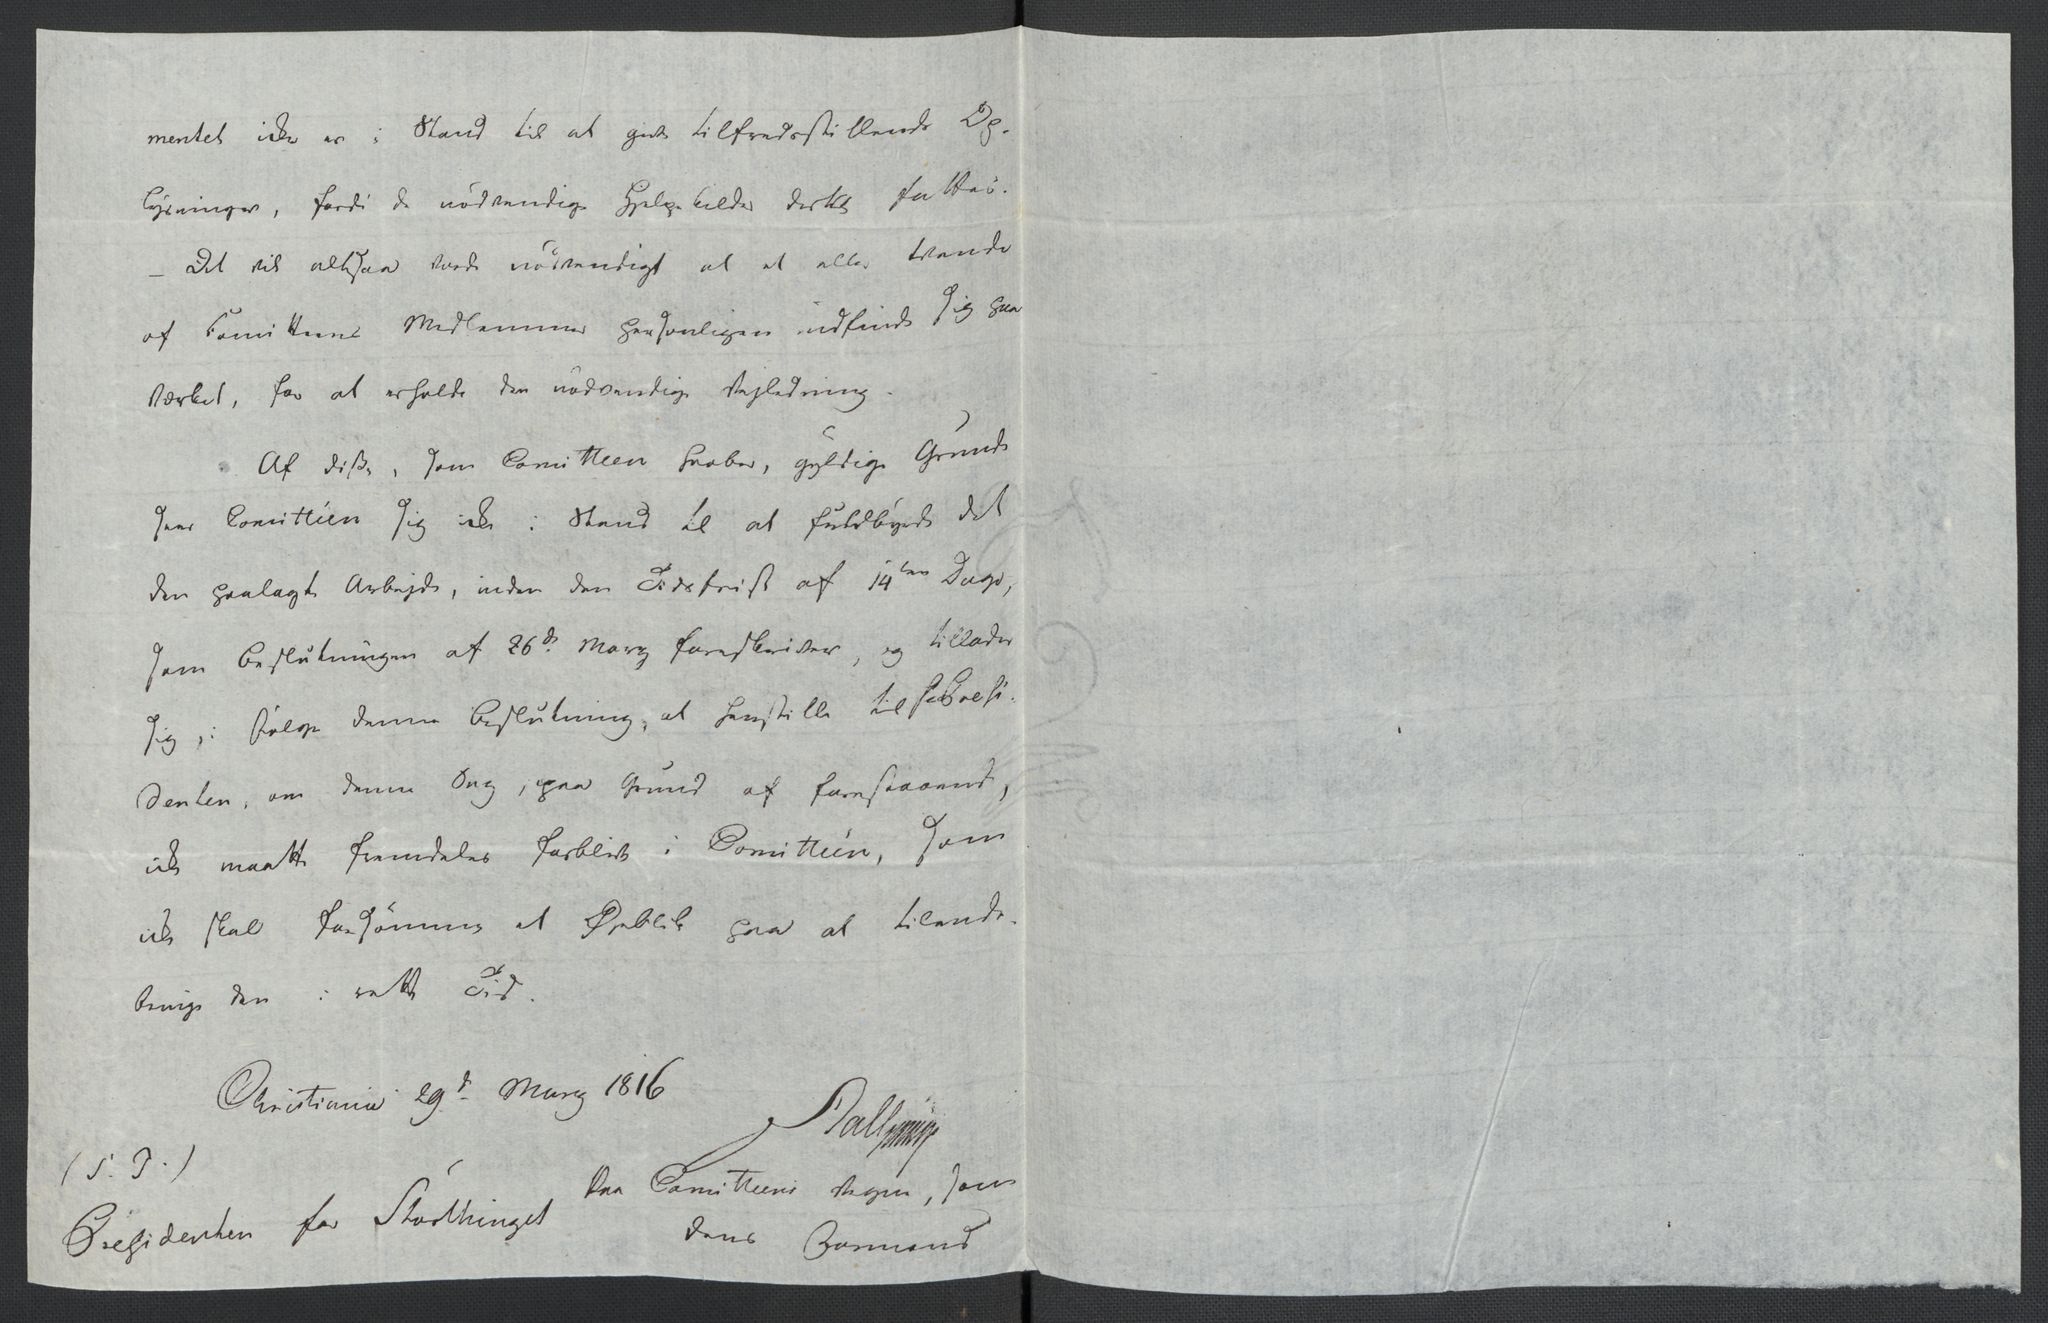 mentet ikke er i Stand til at give tilfredsstillende Op-
lysninger, fordi de nödvendige Hjelpekilder dertil fattes.
– Det vil altsaa vorde nödvendigt at et eller tvende
af Comitteens Medlemmer personligen indfinde sig paa
Værket, for at erholde den nödvendige Vejledning.
Af disse, som Comitteen haaber, gyldige Grunde
seer Comitteen sig ikke i Stand til at fuldbyrde det
den paalagte Arbejde, inden den Tidsfrist af 14ten Dage,
som Beslutningen af 26d. Marz foreskriver, og tillader
sig, i Fölge denne Beslutning, at henstille til Hr Præsi-
denten, om denne Sag, paa Grund af forestaaende,
ikke maatte fremdeles forblive i Comitteen, som
ikke skal forsömme et Öjeblik paa at tilende-
bringe den i rette Tid.
Christiania 29d. Marz 1816
(S. T.)
Paa Comitteens Vegne, som
Præsidenten for Storthinget
dens Formand